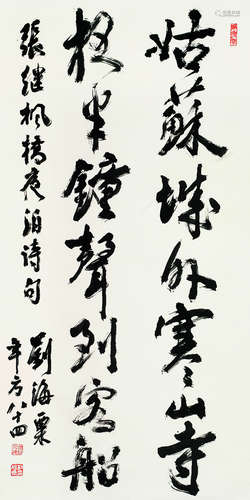 姑蘇城外寒山寺
夜半鐘聲到客船
張繼楓橋夜泊詩句
劉海粟
年方八十四